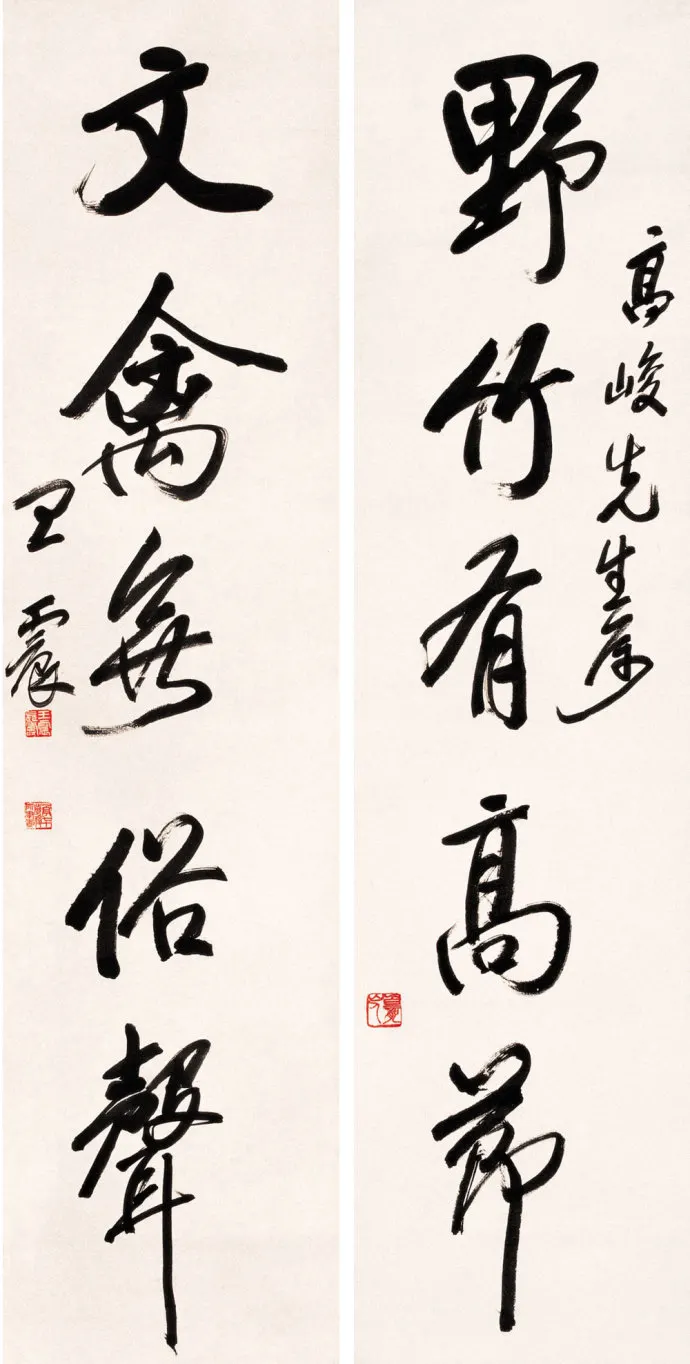 高峻先生属
野竹有高節
文禽無俗聲
王震